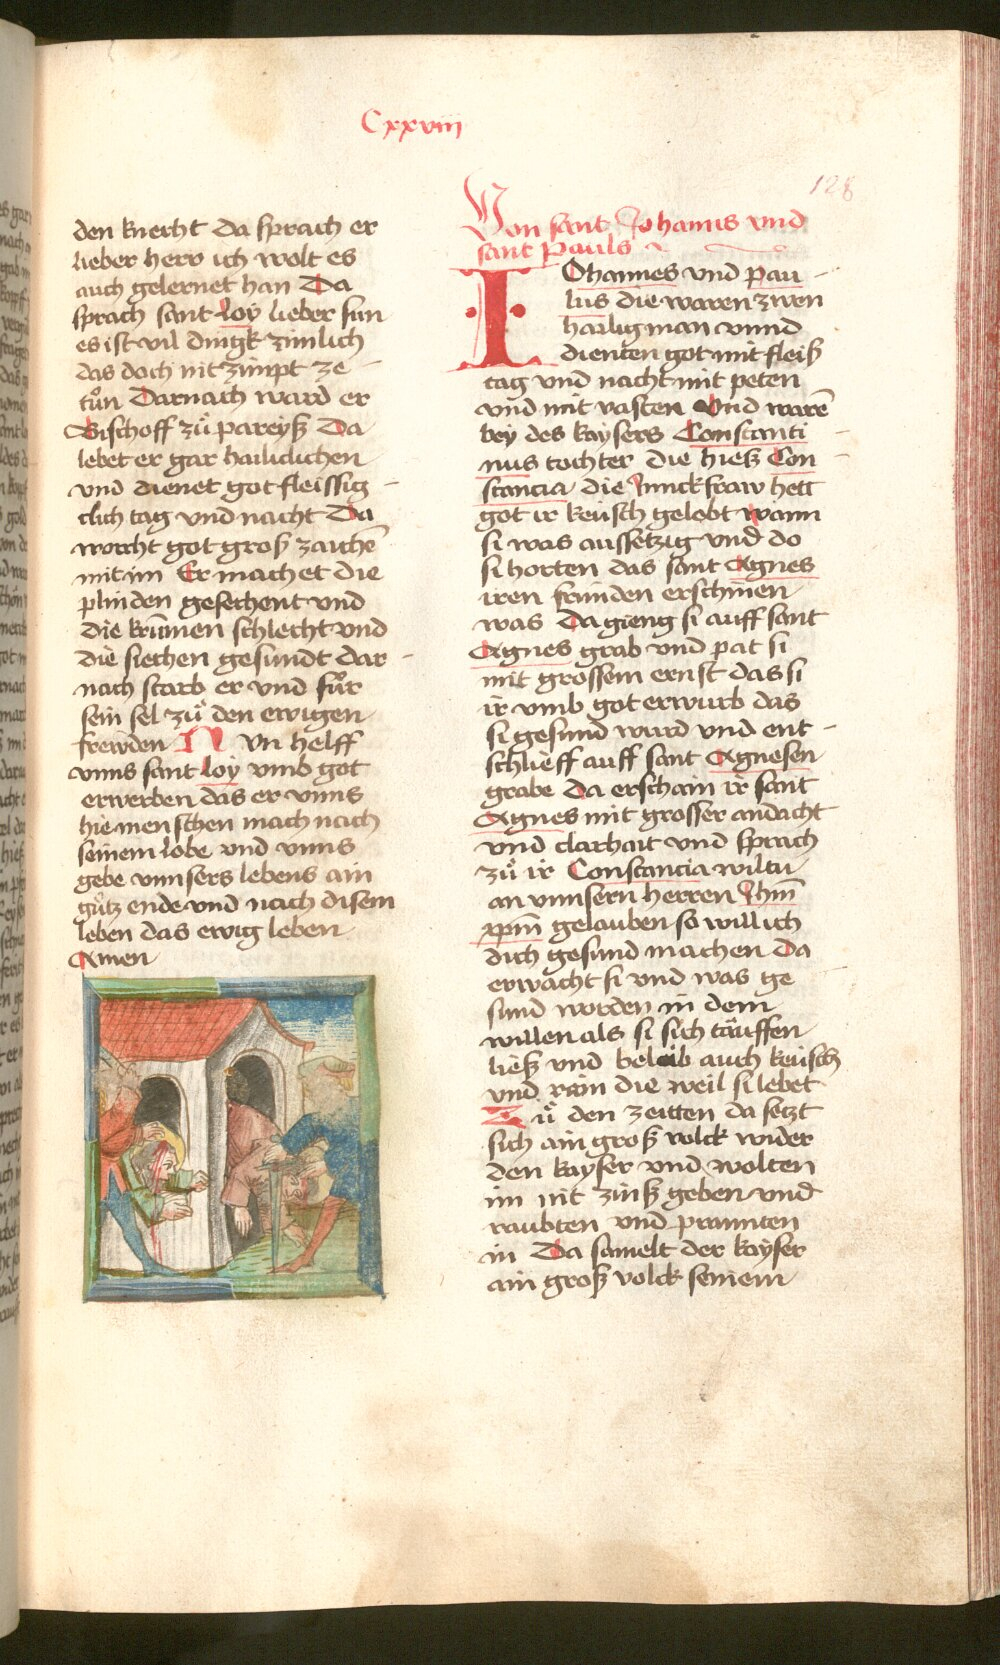 Cxxviii
128
den knecht Da sprach er
lieber herr ich wolt es
auch gelernet han Da
sprach sant Loy lieber sun
es ist vil dingk zimlich
das doch nit zimpt ze
tůn Darnach ward er
Bischoff zů pareyß Da
lebet er gar hailiclichen
vnd dienet got fleissig
clich tag vnd nacht Da
worcht got groß zaichē
mit im Er machet die
plinden gesechent vnd
die krūmen schlecht vnd
die siechen gesundt dar
nach starb er vnd fůr
sein sel zů den ewigen
frewden Nvn helff
vnns sant loy vmb got
erwerben das er vnns
hie menschen mach nach
seinem lobe vnd vnns
gebe vnnsers lebens ain
gůtz ende vnd nach disem
leben das ewig leben
Amen
Von sant Johanns vnd
sant Pauls
IOhannes vnd pau
lus die waren zwen
hailig man vnnd
dienten got mit fleiß
tag vnd nacht mit peten
vnd mit vasten Vnd warē
bey des kaysers Constanti
nus tochter die hieß Con
stancia die Junckfraw hett
got ir keusch gelobt wann
si was aussetzig vnd do
si horten das sant Agnes
iren frainden erschinen
was Da gieng si auff sant
Agnes grab vnd pat si
mit grossem ernst das si
ir vmb got erwurb das
si gesund wurd vnd ent
schlieff auff sant Agnesen
grabe Da erschain ir sant
Agnes mit grosser andacht
vnd clarhait vnd sprach
zů ir Constancia wiltu
an vnnsern herren Jhm̄
xpm̄ gelauben so will ich
dich gesund machen Da
erwacht si vnd was ge
sund worden in dem
willen als si sich täuffen
ließ vnd belaib auch keusch
vnd rain die weil si lebet
Zů den zeitten da setzt
sich ain groß volck wider
den kayser vnd wolten
im nit zinß geben vnd
raubten vnd prannten
in Da samelt der kayser
ain groß volck seinem